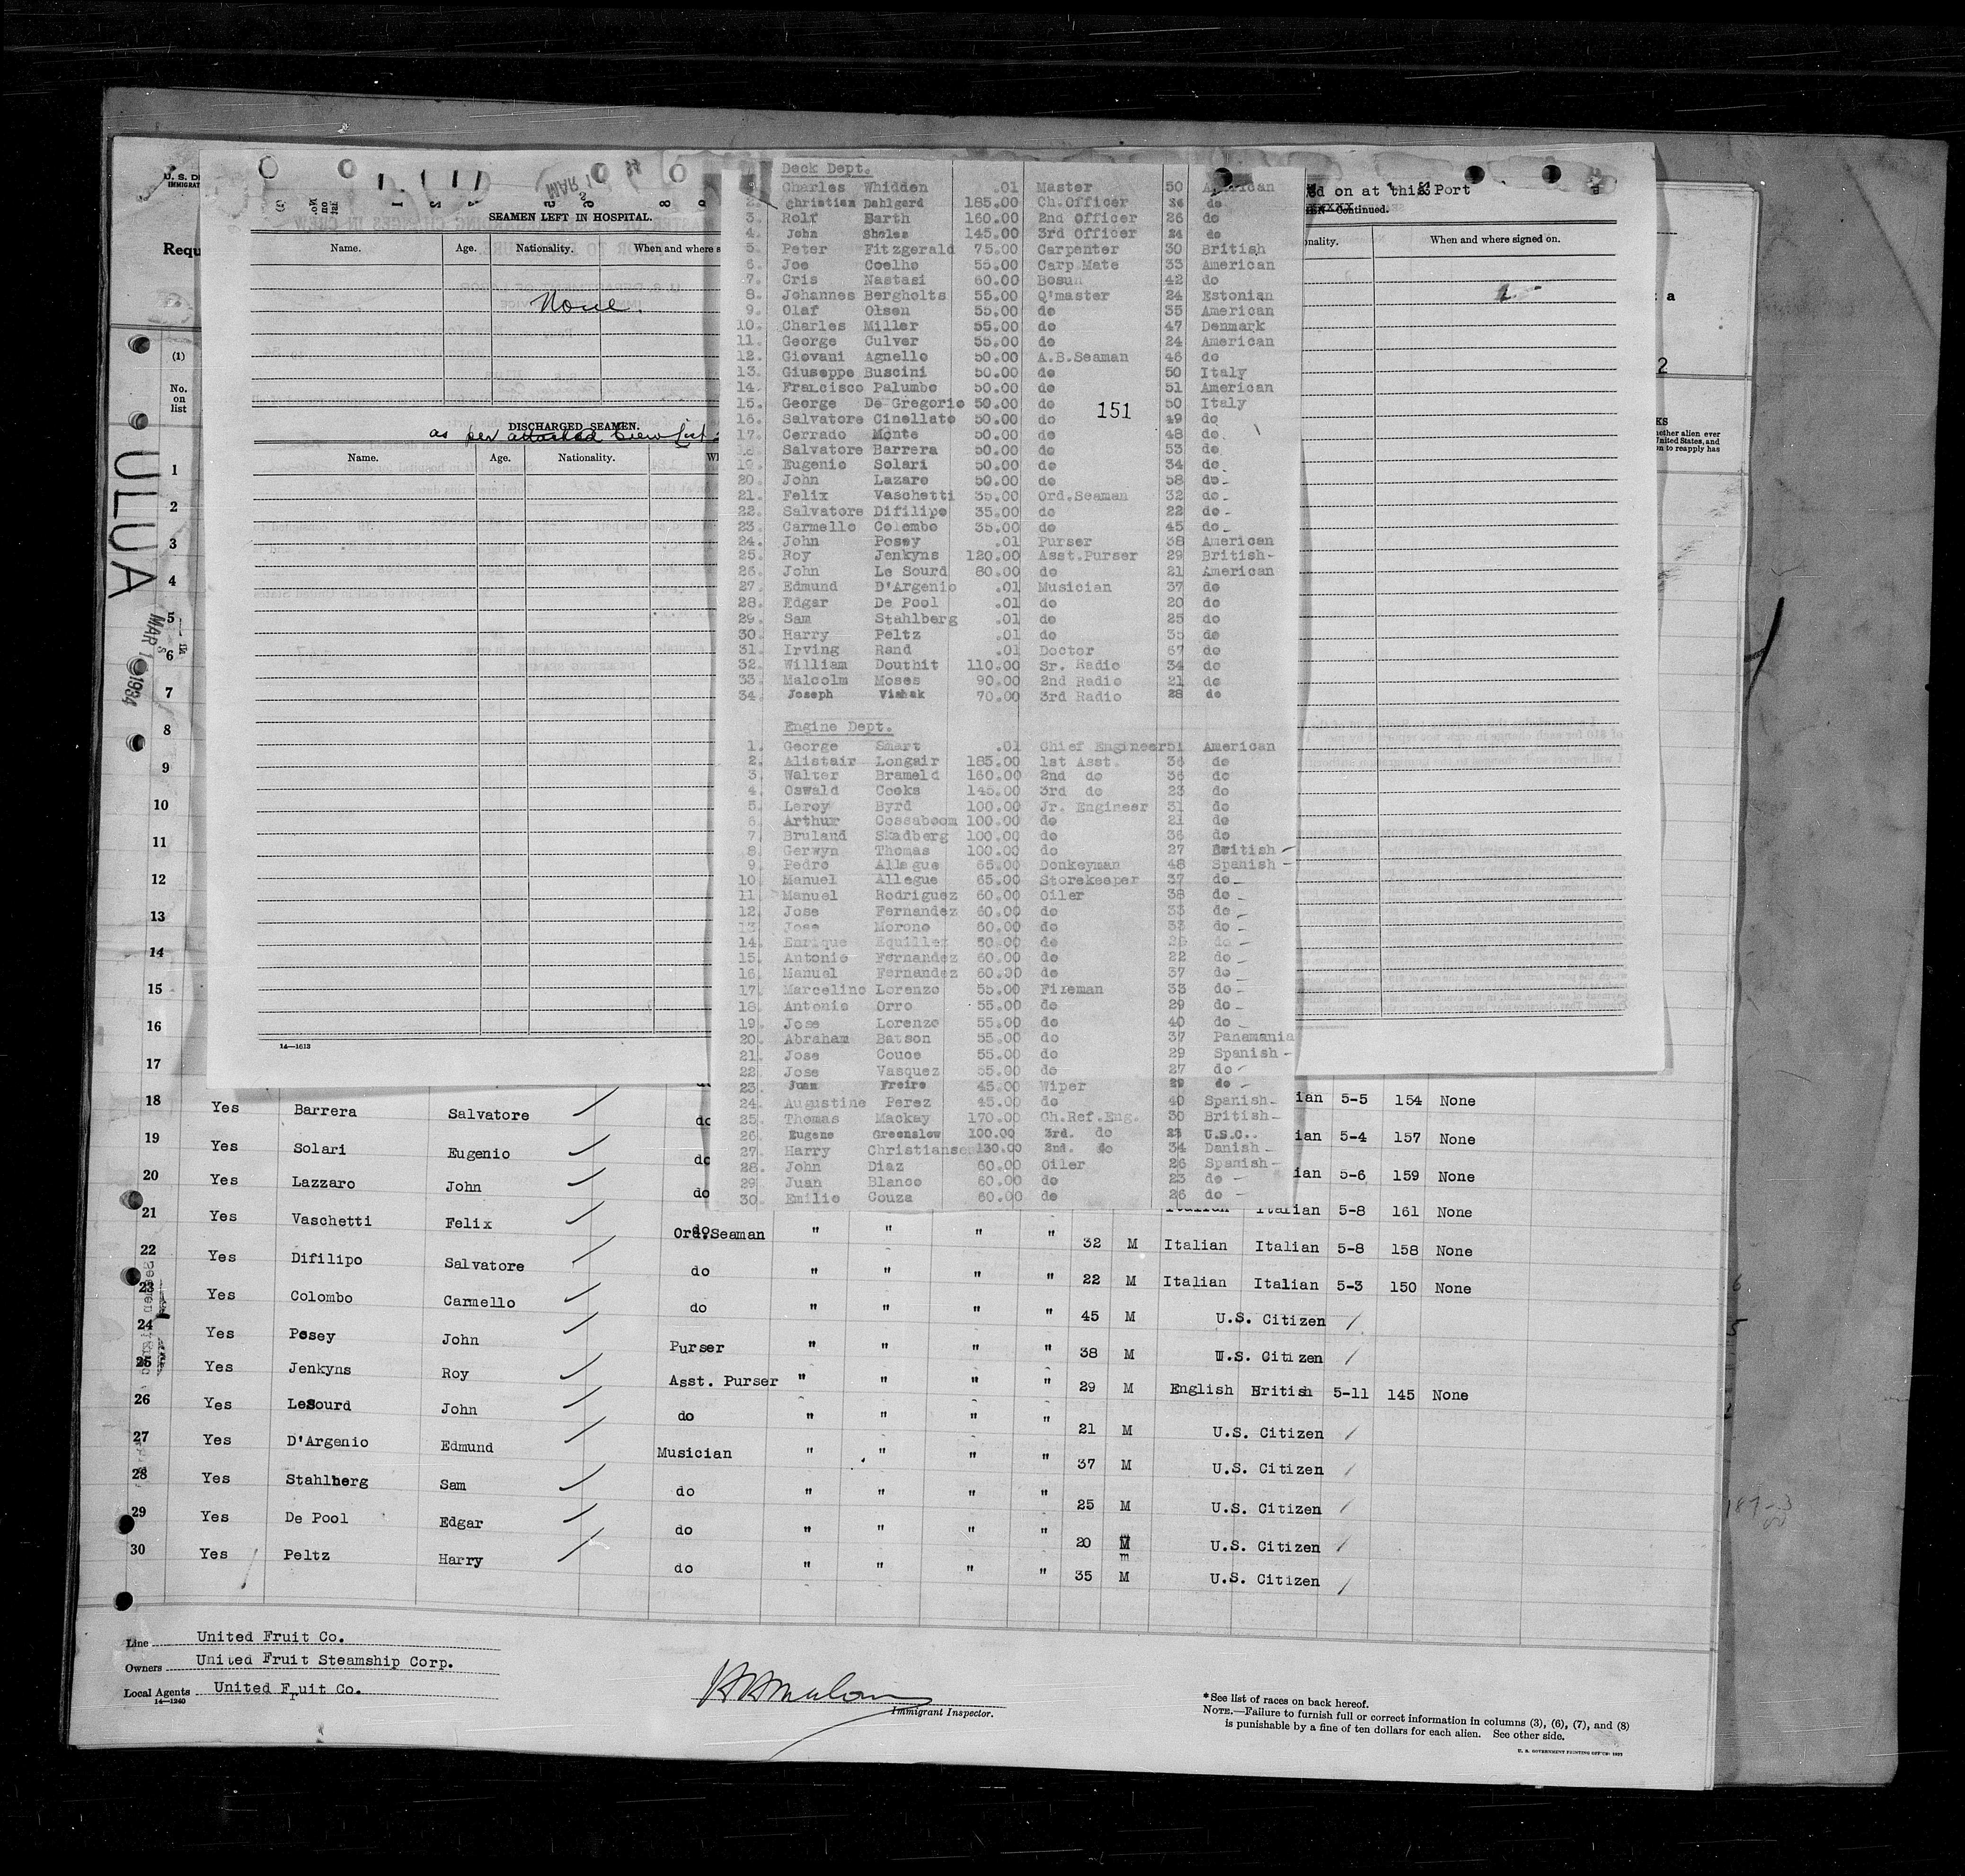 SEAMEN LEFT IN HOSPITAL.
Name. Age. Nationality. When and where s
None.
DISCHARGED SEAMEN.
as per attached Crew List
Name. Age. Nationality.
14—1613
Deck Dept.
Charles Whidden .01 Master 50 American
2. Christian Dahlgard 185.00 Ch.Officer 34 do
3. Rolf Barth 160.00 2nd Officer 26 do
4. John Shales 145.00 3rd Officer 24 do
5. Peter Fitzgerald 75.00 Carpenter 30 British
6. Joe Coelho 55.00 Carp Mate 33 American
7. Cris Nastasi 60.00 Bosun 42 do
8. Johannes Bergholts 55.00 Q'master 24 Estonian
9. Olaf Olsen 55.00 do 35 American
10. Charles Miller 55.00 do 47 Denmark
11. George Culver 55.00 do 24 American
12. Giovani Agnello 50.00 A.B.Seaman 46 do
13. Giuseppe Buscini 50.00 do 50 Italy
14. Francisco Palumbo 50.00 do 51 American
15. George De Gregorio 50.00 do 50 Italy
151
16. Salvatore Cinellato 50.00 do 49 do
17. Cerrado Monte 50.00 do 48 do
18. Salvatore Barrera 50.00 do 53 do
19. Eugenio Solari 50.00 do 34 do
20. John Lazaro 50.00 do 58 do-
21. Felix Vaschetti 35.00 Ord.Seaman 32 do-
22. Salvatore Difilipo 35.00 do 22 do-
23. Carmello Colombo 35.00 do 45 do-
24. John Posey .01 Purser 38 American
25. Roy Jenkyns 120.00 Asst.Purser 29 British-
26. John Le Sourd 80.00 do 21 American
27. Edmund D'Argenio .01 Musician 37 do
28. Edgar De Pool .01 do 20 do
29. Sam Stahlberg .01 do 25 do
30. Harry Peltz .01 do 35 do
31. Irving Rand .01 Doctor 67 do
32. William Douthit 110.00 Sr. Radio 34 do
33. Malcolm Moses 90.00 2nd Radio 21 do
34. Joseph Vishak 70.00 3rd Radio 28 do
Engine Dept.
1. George Smart .01 Chief Engineer 51 American
2. Alistair Longair 185.00 1st Asst. 36 do
3. Walter Brameld 160.00 2nd do 36 do
4. Oswald Cooks 145.00 3rd do 23 do
5. Leroy Byrd 100.00 Jr. Engineer 31 do
6. Arthur Cossaboom 100.00 do 21 do
7. Bruland Skadberg 100.00 do 36 do
8. Gerwyn Thomas 100.00 do 27 British-
9. Pedro Allegue 65.00 Donkeyman 48 Spanish-
10. Manuel Allegue 65.00 Storekeeper 37 do-
11. Manuel Rodriguez 60.00 Oiler 38 do-
12. Jose Fernandez 60.00 do 33 do-
13. Jose Morono 60.00 do 33 do-
14. Enrique Equillez 50.00 do 26 do-
15. Antonio Fernandez 60.00 do 22 do-
16. Manuel Fernandez 60.00 do 37 do-
17. Marcelino Lorenzo 55.00 Fireman 33 do-
18. Antonio Orro 55.00 do 29 do-
19. Jose Lorenzo 55.00 do 40 do-
20. Abraham Batson 55.00 do 37 Panamania
21. Jose Couce 55.00 do 29 Spanish-
22. Jose Vasquez 55.00 do 27 do-
23. Juan Freire 45.00 Wiper 29 do-
24. Augustine Perez 45.00 do 40 Spanish-
25. Thomas Mackay 170.00 Ch.Ref.Eng. 30 British-
26. Eugene Greenslow 100.00 3rd. do 23 U.S.C.
27. Harry Christiansen 130.00 2nd. do 34 Danish-
28. John Diaz 60.00 Oiler 26 Spanish-
29. Juan Blanco 60.00 do 23 do-
30. Emilio Couza 60.00 do 26 do-
ed on at this Port
Continued.
nality. When and where signed on.
U. S. DE
IMMIGRAT
Requ
(1)
No. on list
ULUA
MAR 1 1934
1
2
3
4
5
6
7
8
9
10
11
12
13
14
15
16
17
18 Yes Barrera Salvatore do ian 5-5 154 None
19 Yes Solari Eugenio do ian 5-4 157 None
20 Yes Lazzaro John do ian 5-6 159 None
21 Yes Vaschetti Felix Ord.Seaman Italian Italian 5-8 161 None
22 Yes Difilipo Salvatore do " " " " 32 M Italian Italian 5-8 158 None
23 Yes Colombo Carmello do " " " " 22 M Italian Italian 5-3 150 None
24 Yes Posey John Purser " " " " 45 M U.S. Citizen
25 Yes Jenkyns Roy Asst. Purser " " " " 38 M U.S. Citizen
26 Yes LeSourd John do " " " " 29 M English British 5-11 145 None
27 Yes D'Argenio Edmund Musician " " " " 21 M U.S. Citizen
28 Yes Stahlberg Sam do " " " " 37 M U.S. Citizen
29 Yes De Pool Edgar do " " " " 25 M U.S. Citizen
30 Yes Peltz Harry do " " " " 20 M U.S. Citizen
35 M U.S. Citizen
Line United Fruit Co.
Owners United Fruit Steamship Corp.
Local Agents United Fruit Co.
14—1240
Immigrant Inspector.
*See list of races on back hereof.
NOTE.—Failure to furnish full or correct information in columns (3), (6), (7), and (8)
is punishable by a fine of ten dollars for each alien. See other side.
U. S. GOVERNMENT PRINTING OFFICE